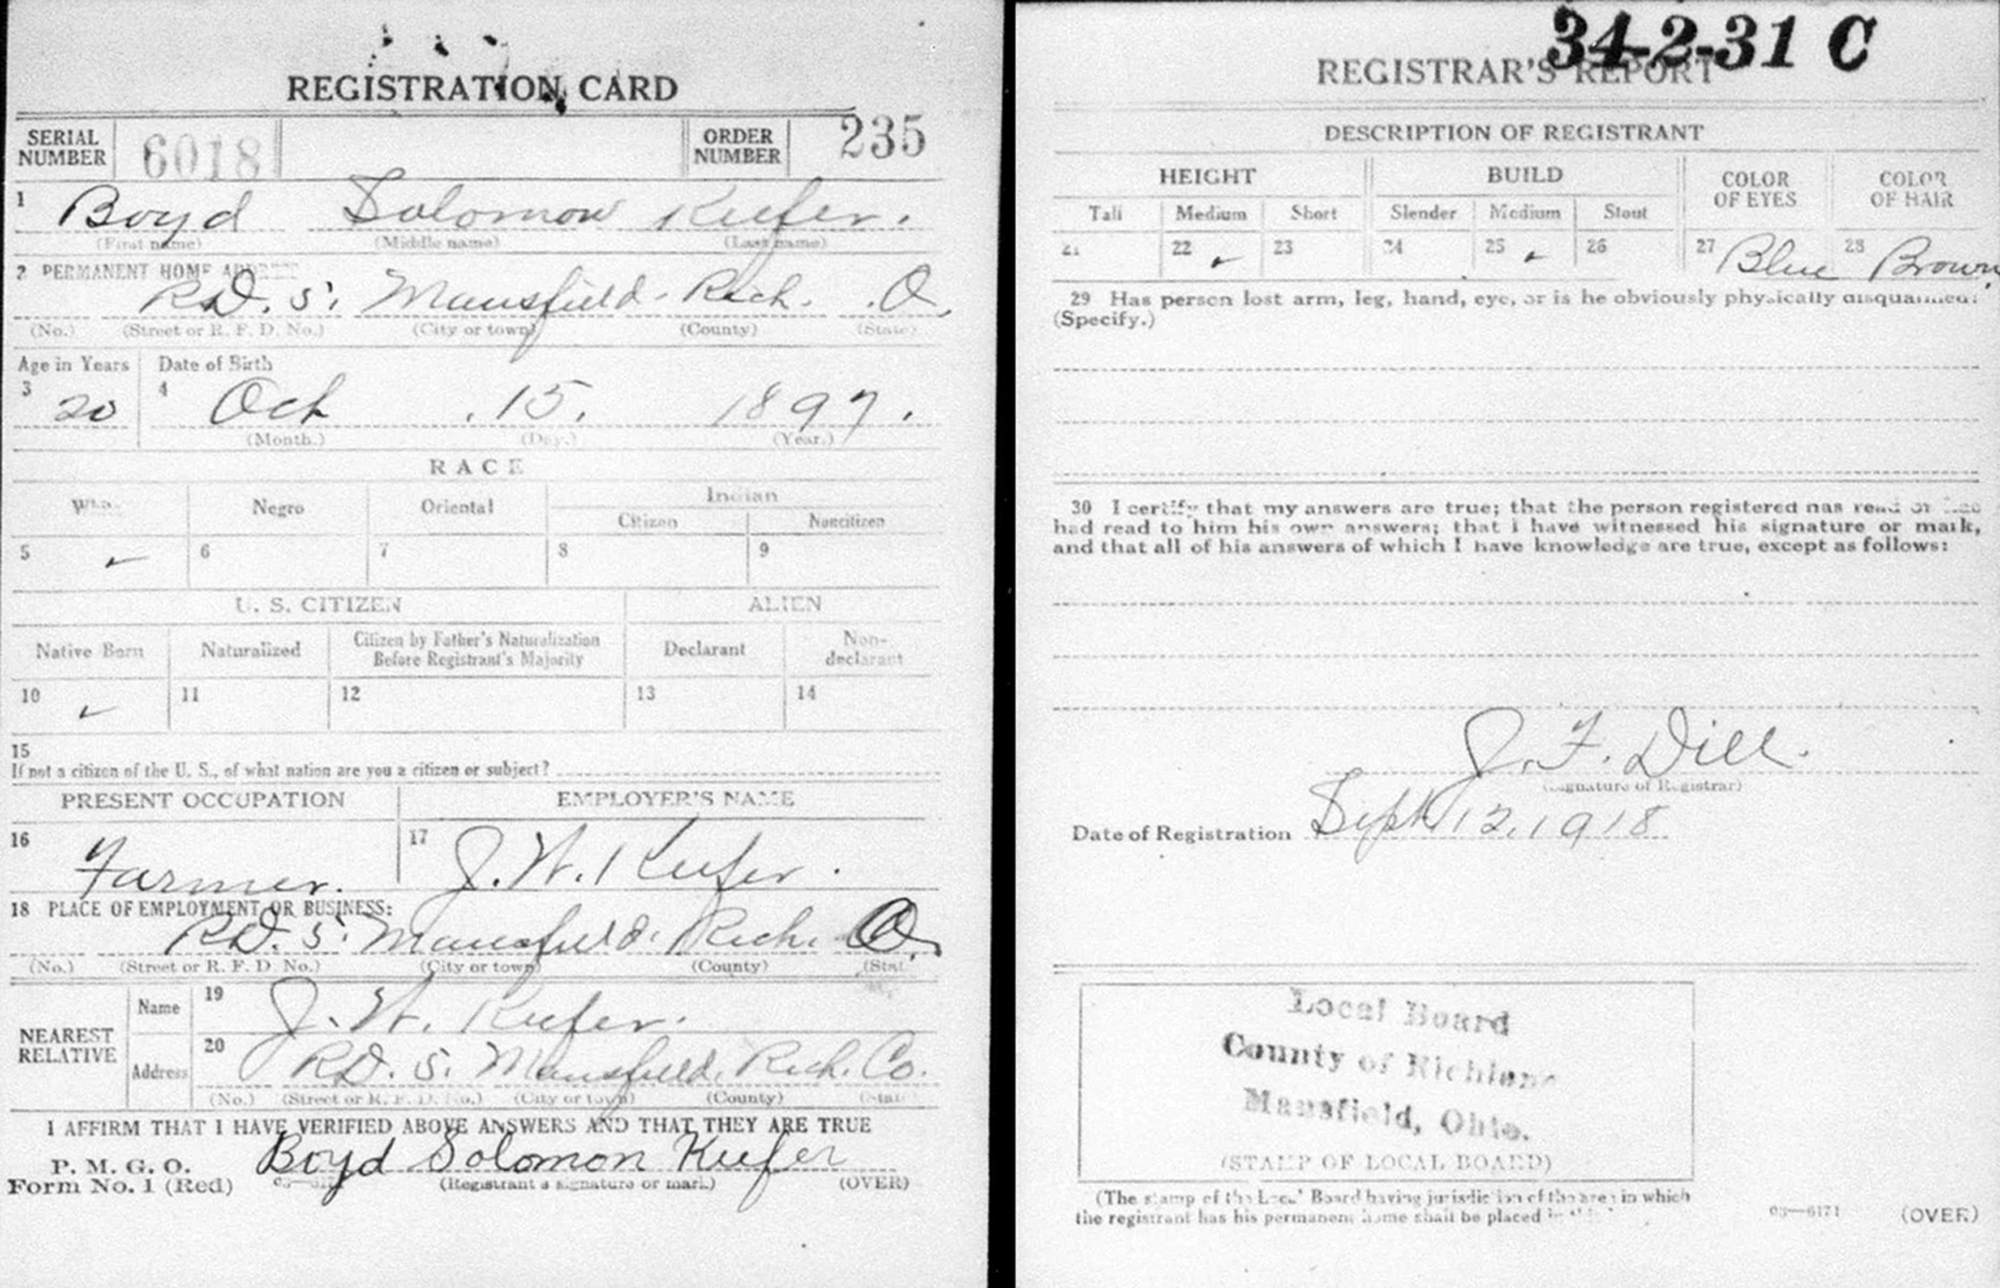 REGISTRATION CARD
SERIAL NUMBER 6018 ORDER NUMBER 235
1 Boyd Solomon Keefer.
(First name) (Middle name) (Last name)
2 PERMANENT HOME ADDRESS
RD. 5. Mansfield. Rich. O.
(No.) (Street or R. F. D. No.) (City or town) (County) (State)
Age in Years Date of Birth
3 20 4 Oct. 15. 1897.
(Month.) (Day.) (Year.)
RACE
White Negro Oriental Indian
Citizen Noncitizen
5 ✓ 6 7 8 9
U. S. CITIZEN ALIEN
Native Born Naturalized Citizen by Father's Naturalization Before Registrant's Majority Declarant Non-declarant
10 ✓ 11 12 13 14
15
If not a citizen of the U. S., of what nation are you a citizen or subject?
PRESENT OCCUPATION EMPLOYER'S NAME
16 Farmer. 17 J. W. Keefer.
18 PLACE OF EMPLOYMENT OR BUSINESS:
RD. 5. Mansfield. Rich. O.
(No.) (Street or R. F. D. No.) (City or town) (County) (State)
NEAREST RELATIVE
Name 19 J. W. Keefer.
Address 20 RD. 5. Mansfield. Rich. Co.
(No.) (Street or R. F. D. No.) (City or town) (County) (State)
I AFFIRM THAT I HAVE VERIFIED ABOVE ANSWERS AND THAT THEY ARE TRUE
P. M. G. O.
Form No. 1 (Red) Boyd Solomon Keefer
(Registrant's signature or mark) (OVER)
34-2-31 C
REGISTRAR'S REPORT
DESCRIPTION OF REGISTRANT
HEIGHT BUILD COLOR OF EYES COLOR OF HAIR
Tall Medium Short Slender Medium Stout
21 22 ✓ 23 24 25 ✓ 26 27 Blue 28 Brown
29 Has person lost arm, leg, hand, eye, or is he obviously physically disqualified?
(Specify.)
30 I certify that my answers are true; that the person registered has read or has
had read to him his own answers; that I have witnessed his signature or mark,
and that all of his answers of which I have knowledge are true, except as follows:
J. F. Dill.
(Signature of Registrar)
Date of Registration Sept 12, 1918
Local Board
County of Richland
Mansfield, Ohio.
(STAMP OF LOCAL BOARD)
(The stamp of the Local Board having jurisdiction of the area in which
the registrant has his permanent home shall be placed in
03—6171 (OVER)